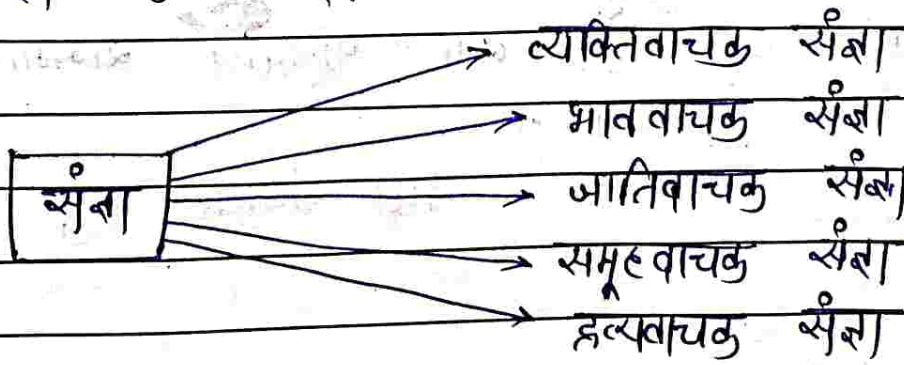 व्यक्तिवाचक संज्ञा
भाववाचक संज्ञा
संज्ञा
जातिवाचक संज्ञा
समूहवाचक संज्ञा
द्रव्यवाचक संज्ञा